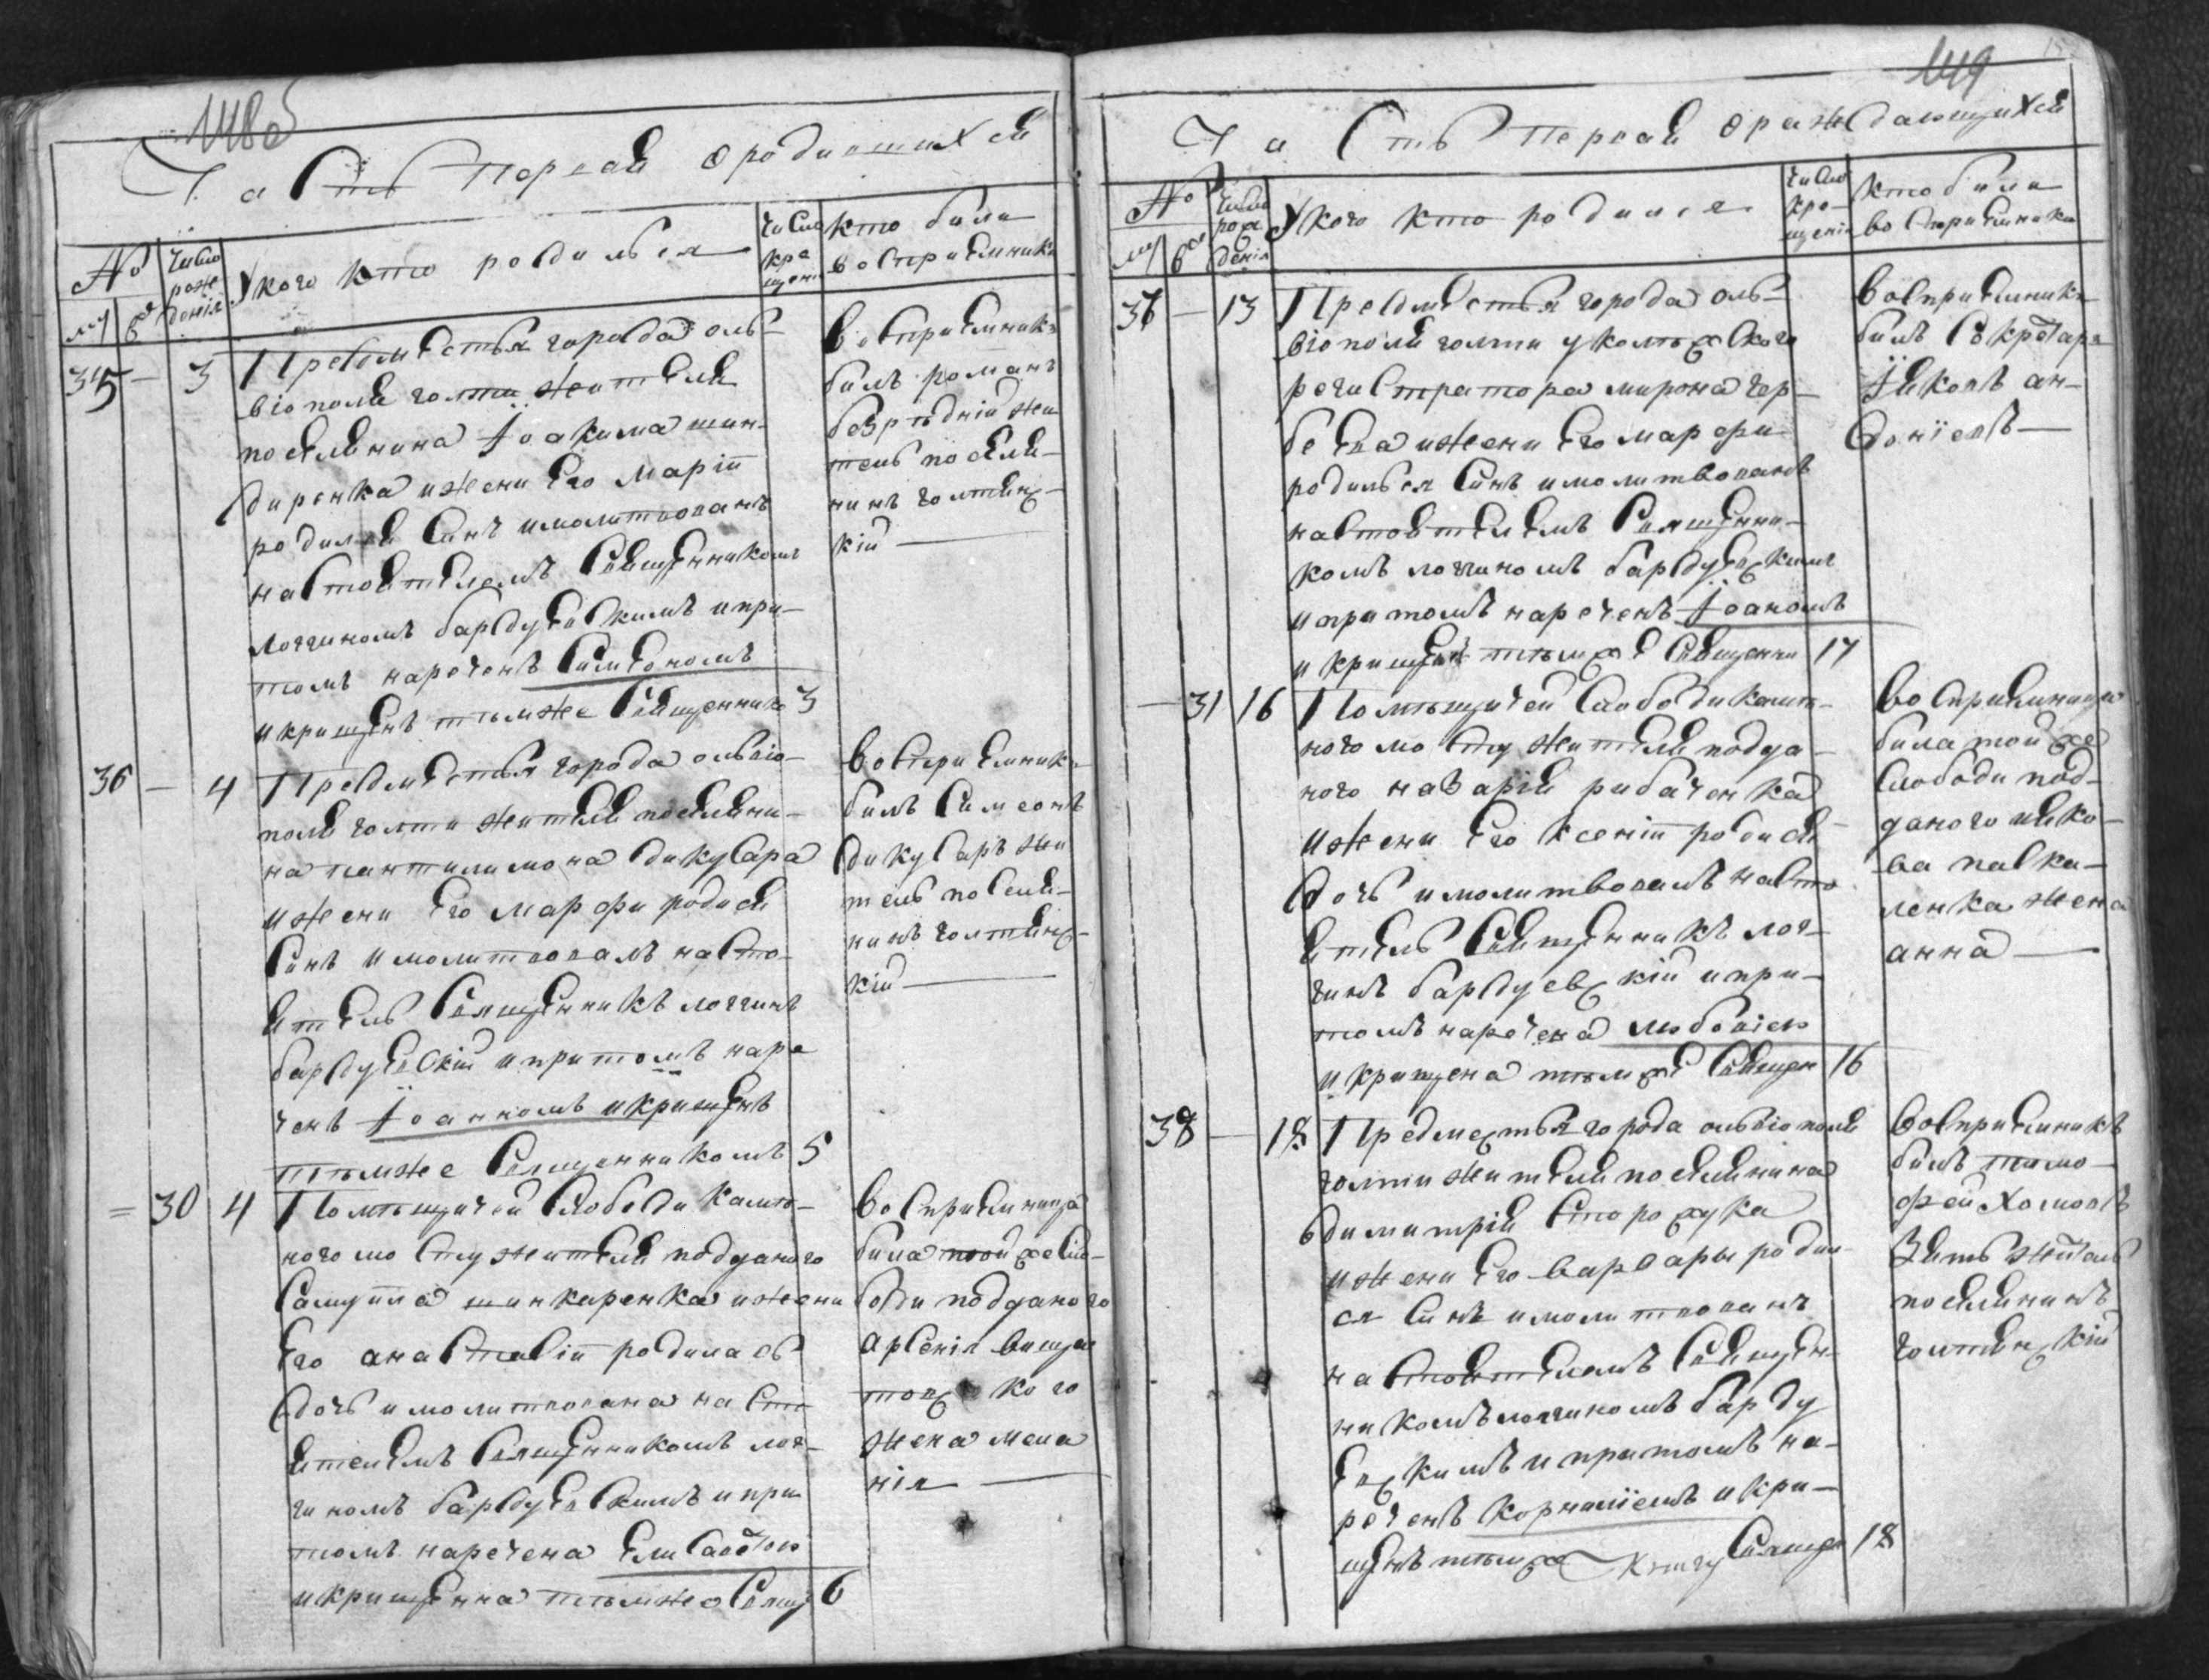 148об
Часть Первая о родившихся
№ Число рожденія У кого кто родился Число крещени Кто были воспріемники
му же
35 — 3 Предмѣстья города оль-
віополя голти жителя
поселянина Іоакима шин-
диренка и жени Его Маріи
родился Синъ и молитвованъ
настоятелемъ Священникомъ
Логгиномъ бардуевскимъ и при-
томъ нареченъ Симеономъ
и крищенъ тѣмже Священнико 3
воспріемник
билъ романъ
безрѣдній жи
тель поселя-
нинъ голтянс-
кій —
36 — 4 Предмѣстья города ольвіо-
поля голти жителя поселяни-
на пантилимона дикусара
и жени Его Марфи родися
Синъ и молитвовалъ насто-
ятель Священникъ логгинъ
бардуевскій и притомъ наре
ченъ Іоанномъ и крищенъ
тѣмже Священникомъ 5
воспріемник
билъ Симеонъ
дикусаръ жи
тель поселя-
нинъ голтянс-
кій —
= 30 4 Помѣщичей Слободи Камѣ-
ного мосту жителя подданого
Самуила шинкаренка и жени
Его анастасіи родилась
дочь и молитвована насто
ятелемъ Священникомъ лог-
гиномъ бардуевскимъ и при
томъ наречена Елисаветою
и крищенна тѣмже Свящ 6
воспріемница
била тойже Сло-
боди подданого
арсенія
жена мела
нія —
149
Часть Первая о раждающихся
№ Число рожденія У кого кто родился Число крещенія Кто били воспріемники
му же
37 — 13 Предмѣстья города оль-
віополя голти у колѣжского
регистратора мирона чер-
бе и жени Его Марфи
родился Синъ и молитвованъ
настоятелемъ Священни-
комъ логгиномъ бардуевскимъ
и притомъ нареченъ Іоаномъ
и крищенъ тѣмже Священни 17
воспріемник
билъ Секретарь
Яковъ ан-
доніевъ —
— 31 16 Помѣщичей Слободи Камѣ-
ного мосту жителя подда-
ного назарія рибаченка
и жени Его Ксеніи родися
дочь и молитвовалъ насто
ятель Священникъ лог-
гинъ бардуевскій и при-
томъ наречена любовію
и крищена тѣмже Священ 16
воспріемница
била тойже
Слободи под-
даного яко-
ва павка-
ленка жена
анна —
38 — 18 Предместья города ольвіополя
голти жителя поселянина
димитрія Сторожука
и жени Его варвары роди-
ся Синъ и молитвованъ
настоятелемъ Священ-
никомъ логгиномъ барду
евскимъ и притомъ на-
реченъ Корниліемъ и кри-
щенъ тѣмже Священ 18
воспріемникъ
билъ тимо-
фей Хомовъ
Зять житель
поселянинъ
голтянскій